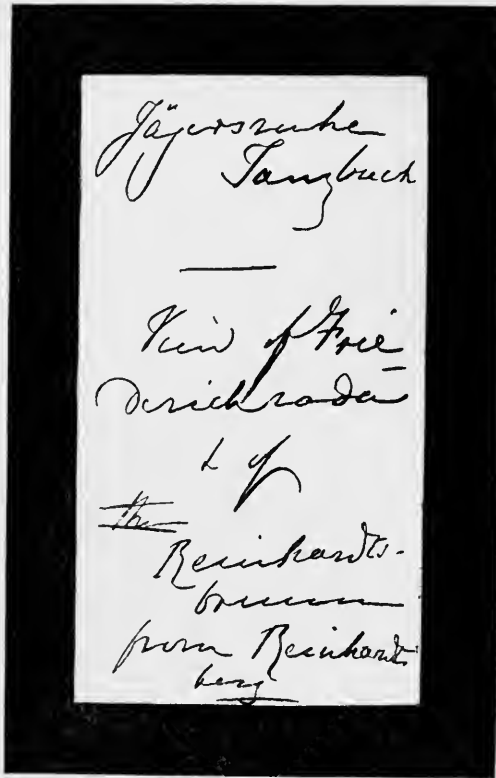 Jägersruhe
Tanzbuch
View of Frie-
derichroda
& of
the
Reinhardts-
brunn
from Reinhardts
berg